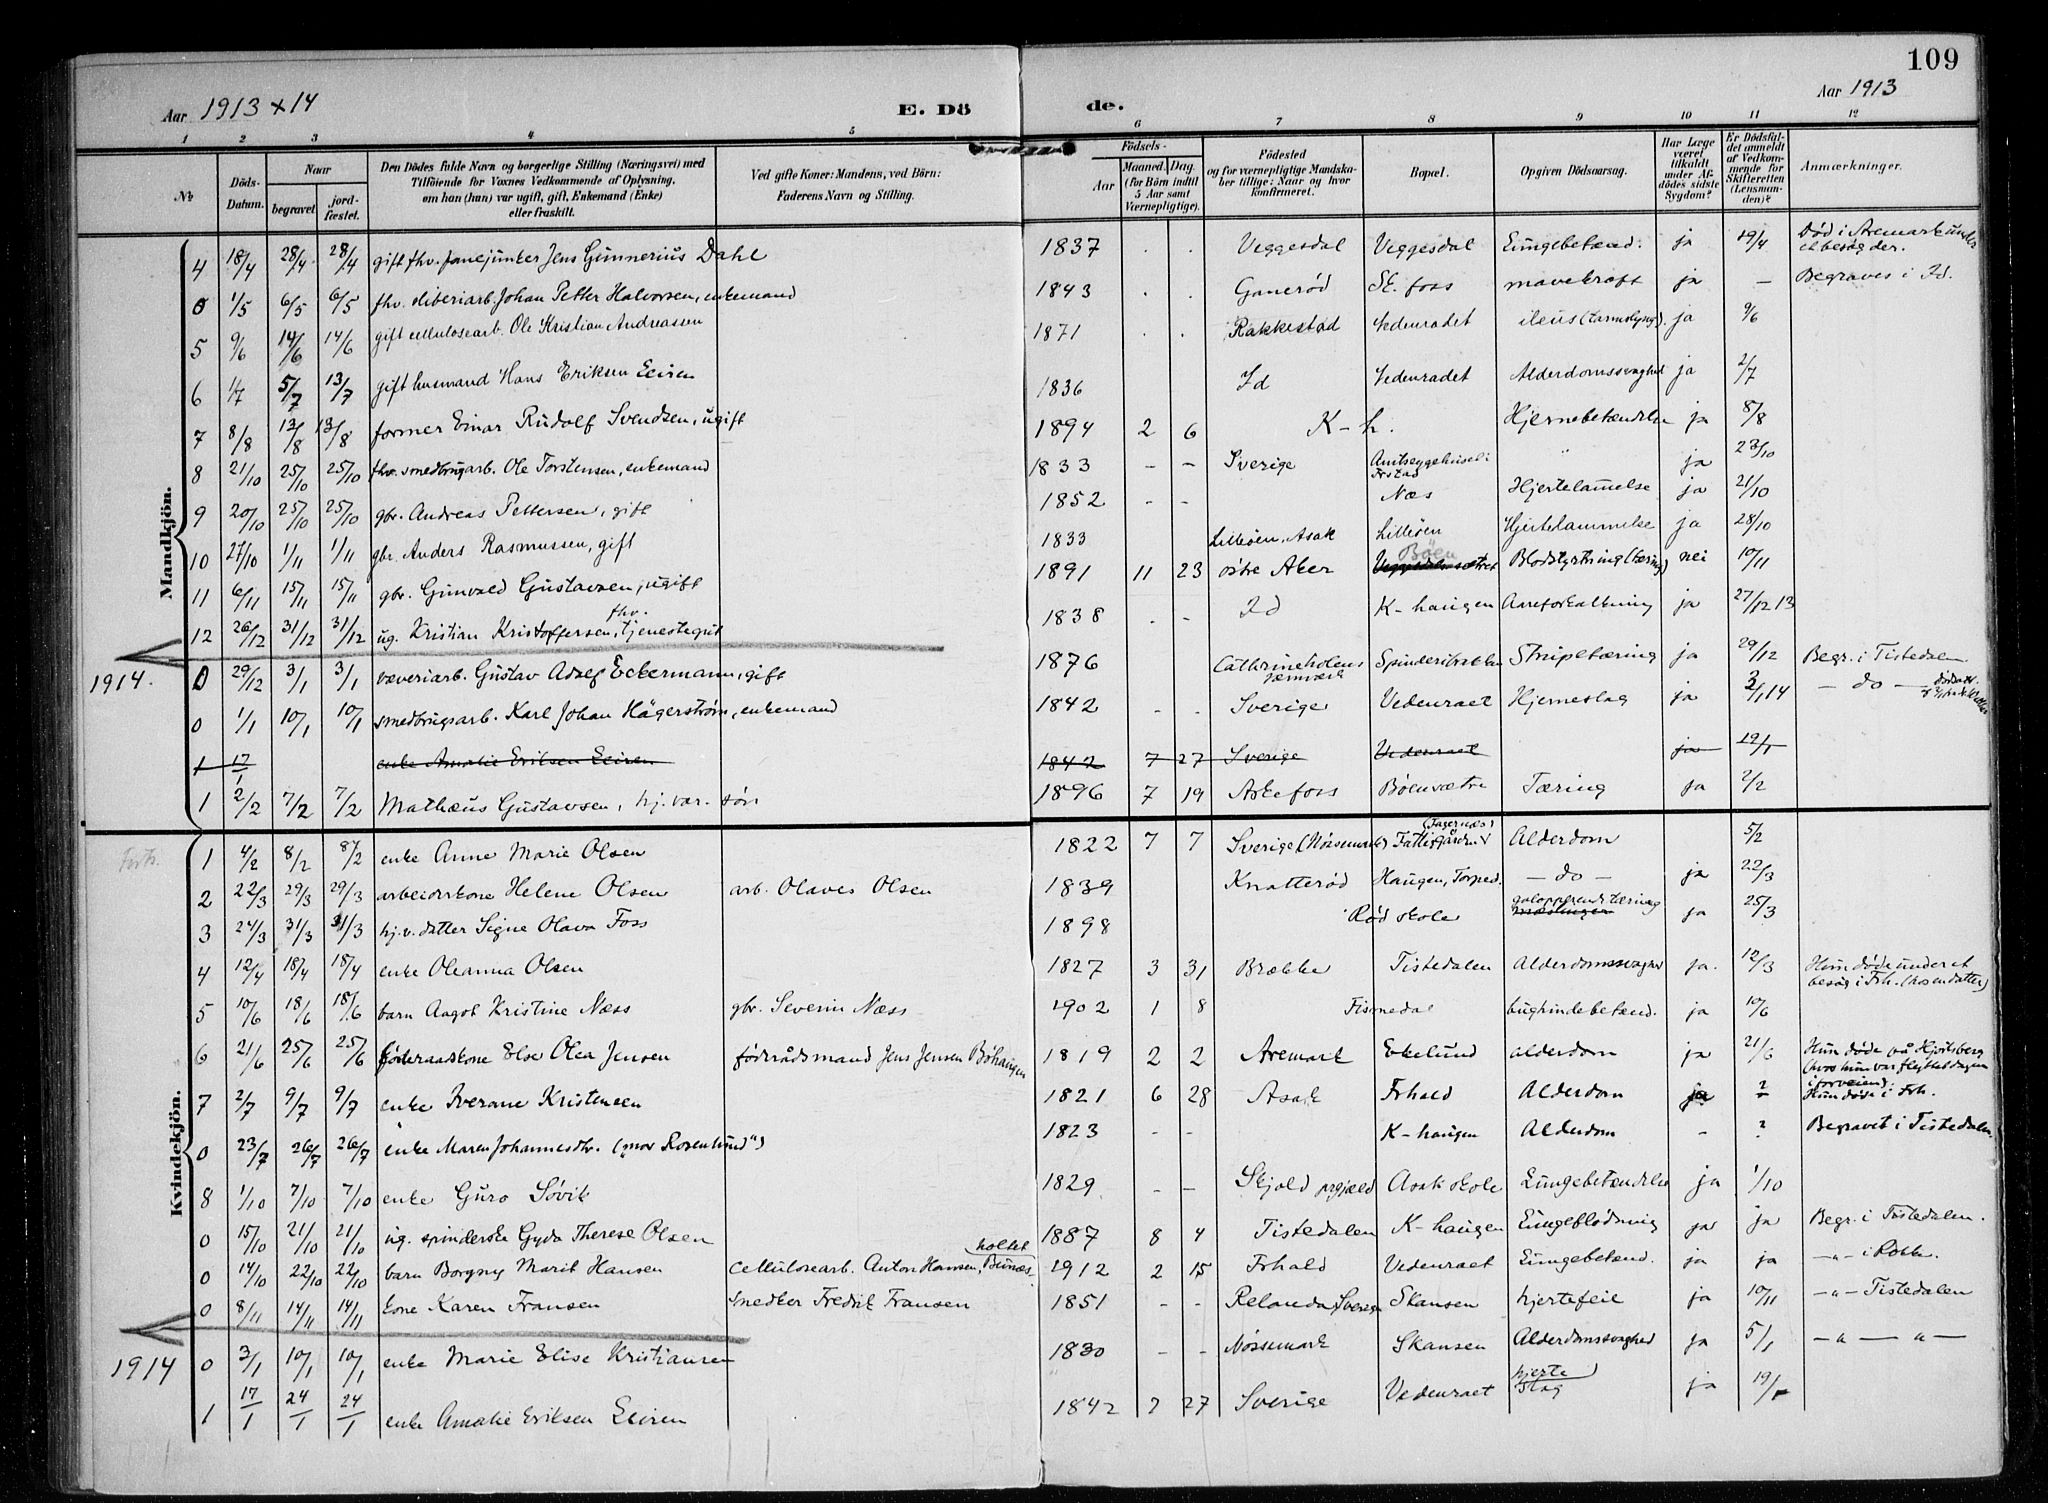 109
Aar 1913 x 14 E. Dö de. Aar 1913
1 2 3 4 5 6 7 8 9 10 11 12
No Döds-Datum. Naar begravet jord-fæstet. Den Dödes fulde Navn og borgerlige Stilling (Næringsvei) med Tilföiende for Voxnes Vedkommende af Oplysning, om han (hun) var ugift, gift, Enkemand (Enke) eller fraskilt. Ved gifte Koner: Mandens, ved Börn: Faderens Navn og Stilling. Födsels- Aar Maaned. Dag. (for Börn indtil 5 Aar samt Værnepligtige). Födested og for værnepligtige Mandskaber tillige: Naar og hvor konfirmeret. Bopæl. Opgiven Dödsaarsag. Har Læge været tilkaldt under Afdödes sidste Sygdom? Er Dödsfaldet anmeldt af Vedkommende for Skifteretten (Lensmanden)? Anmærkninger.
Mandkjön.
4 18/4 28/4 28/4 gift fhv. fanejunker Jens Gunnerius Dahl 1837 . . Veggesdal Veggesdal Lungebetænd. ja 19/4 Død i Aremark under et besøg der.
0 1/5 6/5 6/5 fhv. sliberiarb. Johan Petter Halvorsen, enkemand 1843 . . Ganerød Sk. foss mavekræft ja — Begraves i Id.
5 9/6 14/6 14/6 gift cellulosearb. Ole Kristian Andreassen 1871 . . Rakkestad Vedenradet ileus (tarmslyng). ja 9/6
6 1/7 5/7 13/7 gift husmand Hans Eriksen Leiren 1836 Id Vedenradet Alderdomssvaghed ja 2/7
7 8/8 13/8 13/8 former Einar Rudolf Svendsen, ugift 1894 2 6 K-h. Hjernebetændelse ja 8/8
8 21/10 25/10 25/10 fhv. smedbrugarb. Ole Torstensen, enkemand 1833 – – Sverige Amtssygehuset i Frstad " ja 23/10
9 20/10 25/10 25/10 gbr. Andreas Pettersen, gift 1852 - - Næs Hjertelammelse ja 21/10
10 27/10 1/11 1/11 gbr. Anders Rasmussen, gift 1833 Lilleøen, Asak Lilleøen Hjertelammelse ja 28/10
11 6/11 15/11 15/11 gbr. Gunvald Gustavsen, ugift 1891 11 23 østre Aker Bøen Veggesdalssætret Blodstyrtning (tæring) nei 10/11
12 26/12 31/12 31/12 ug. Kristian Kristoffersen, fhv. tjenestegut 1838 . - Id K-haugen Aareforkalkning ja 27/12 13
1914. 0 29/12 3/1 3/1 væveriarb. Gustav Adolf Eckermann, gift 1876 Cathrineholens jernværk Spinderibakken Strupetæring ja 29/12 Begr. i Tistedalen
0 1/1 10/1 10/1 smedbrugsarb. Karl Johan Hägerström, enkemand 1842 - - Sverige Vedenraet Hjerneslag ja 3/1 14 — do —
1 17/1 enke Amalie Eriksen Leiren 1842 7 27 Sverige Vedenraet ja 19/1
1 2/2 7/2 7/2 Mathæus Gustavsen, hj. vær. søn 1896 7 19 Askefoss Bøensætre Tæring ja 2/2
Kvindekjön.
Forts. 1 4/2 8/2 8/2 enke Anne Marie Olsen 1822 7 7 Sverige, (Nössemark) (Fagernæs) Fattiggården Alderdom 5/2
2 22/3 29/3 29/3 arbeiderskone Helene Olsen arb. Olaves Olsen 1839 Knatterød Haugen, Torped. — do — ja 22/3
3 24/3 31/3 31/3 hj. v. datter Signe Olava Foss 1898 Rød skole galopperende tæring mæslinger ja 25/3
4 12/4 18/4 18/4 enke Oleanna Olsen 1827 3 31 Brække Tistedalen Alderdomssvaghed ja. 12/3 Hun døde under et besøg i Frh. (hos en datter)
5 10/6 18/6 18/6 barn Aagot Kristine Næss gbr. Severin Næss 1902 1 8 Fismedal bughindebetænd. ja 10/6
6 21/6 25/6 25/6 føderaadskone Else Olea Jensen fødrådsmand Jens Jensen Bøhaugen 1819 2 2 Aremark Ekelund alderdom ja 21/6 Hun døde på Hjortsberg (hvor hun var flyttet dagen i forveien).
7 2/7 9/7 9/7 enke Iverane Kristensen 1821 6 28 Asak Frhald Alderdom ja ? Hun døde i Frh.
0 23/7 26/7 26/7 enke Maren Johannesdtr. („mor Rosenlund") 1823 - - K-haugen Alderdom - ? Begravet i Tistedalen.
8 1/10 7/10 7/10 enke Guro Søvik 1829 – – Skjold prgjæld Asak skole Lungebetændelse ja 1/10
0 15/10 21/10 21/10 ug. spinderske Gyda Therese Olsen 1887 8 4 Tistedalen K-haugen Lungeblødning ja ja Begr. i Tistedalen.
0 14/10 22/10 22/10 barn Borgny Marit Hansen cellulosearb. Anton Hansen, holtet 1912 2 15 Frhald Vedenraet Lungebetænd. ja ja —"— i Rokke.
0 8/11 14/11 14/11 kone Karen Fransen Snedker Fredrik Fransen 1851 - - Relanda, Sverige Skansen hjertefeil ja 10/11 —"— Tistedalen
1914 0 3/1 10/1 10/1 enke Marie Elise Kristiansen 1830 - - Nøssemark Skansen Alderdomssvaghed ja 5/1 —"— —"—
1 17/1 24/1 24/1 enke Amalie Eriksen Leiren 1842 7 27 Sverige Vedenraet hjerte slag ja 19/1